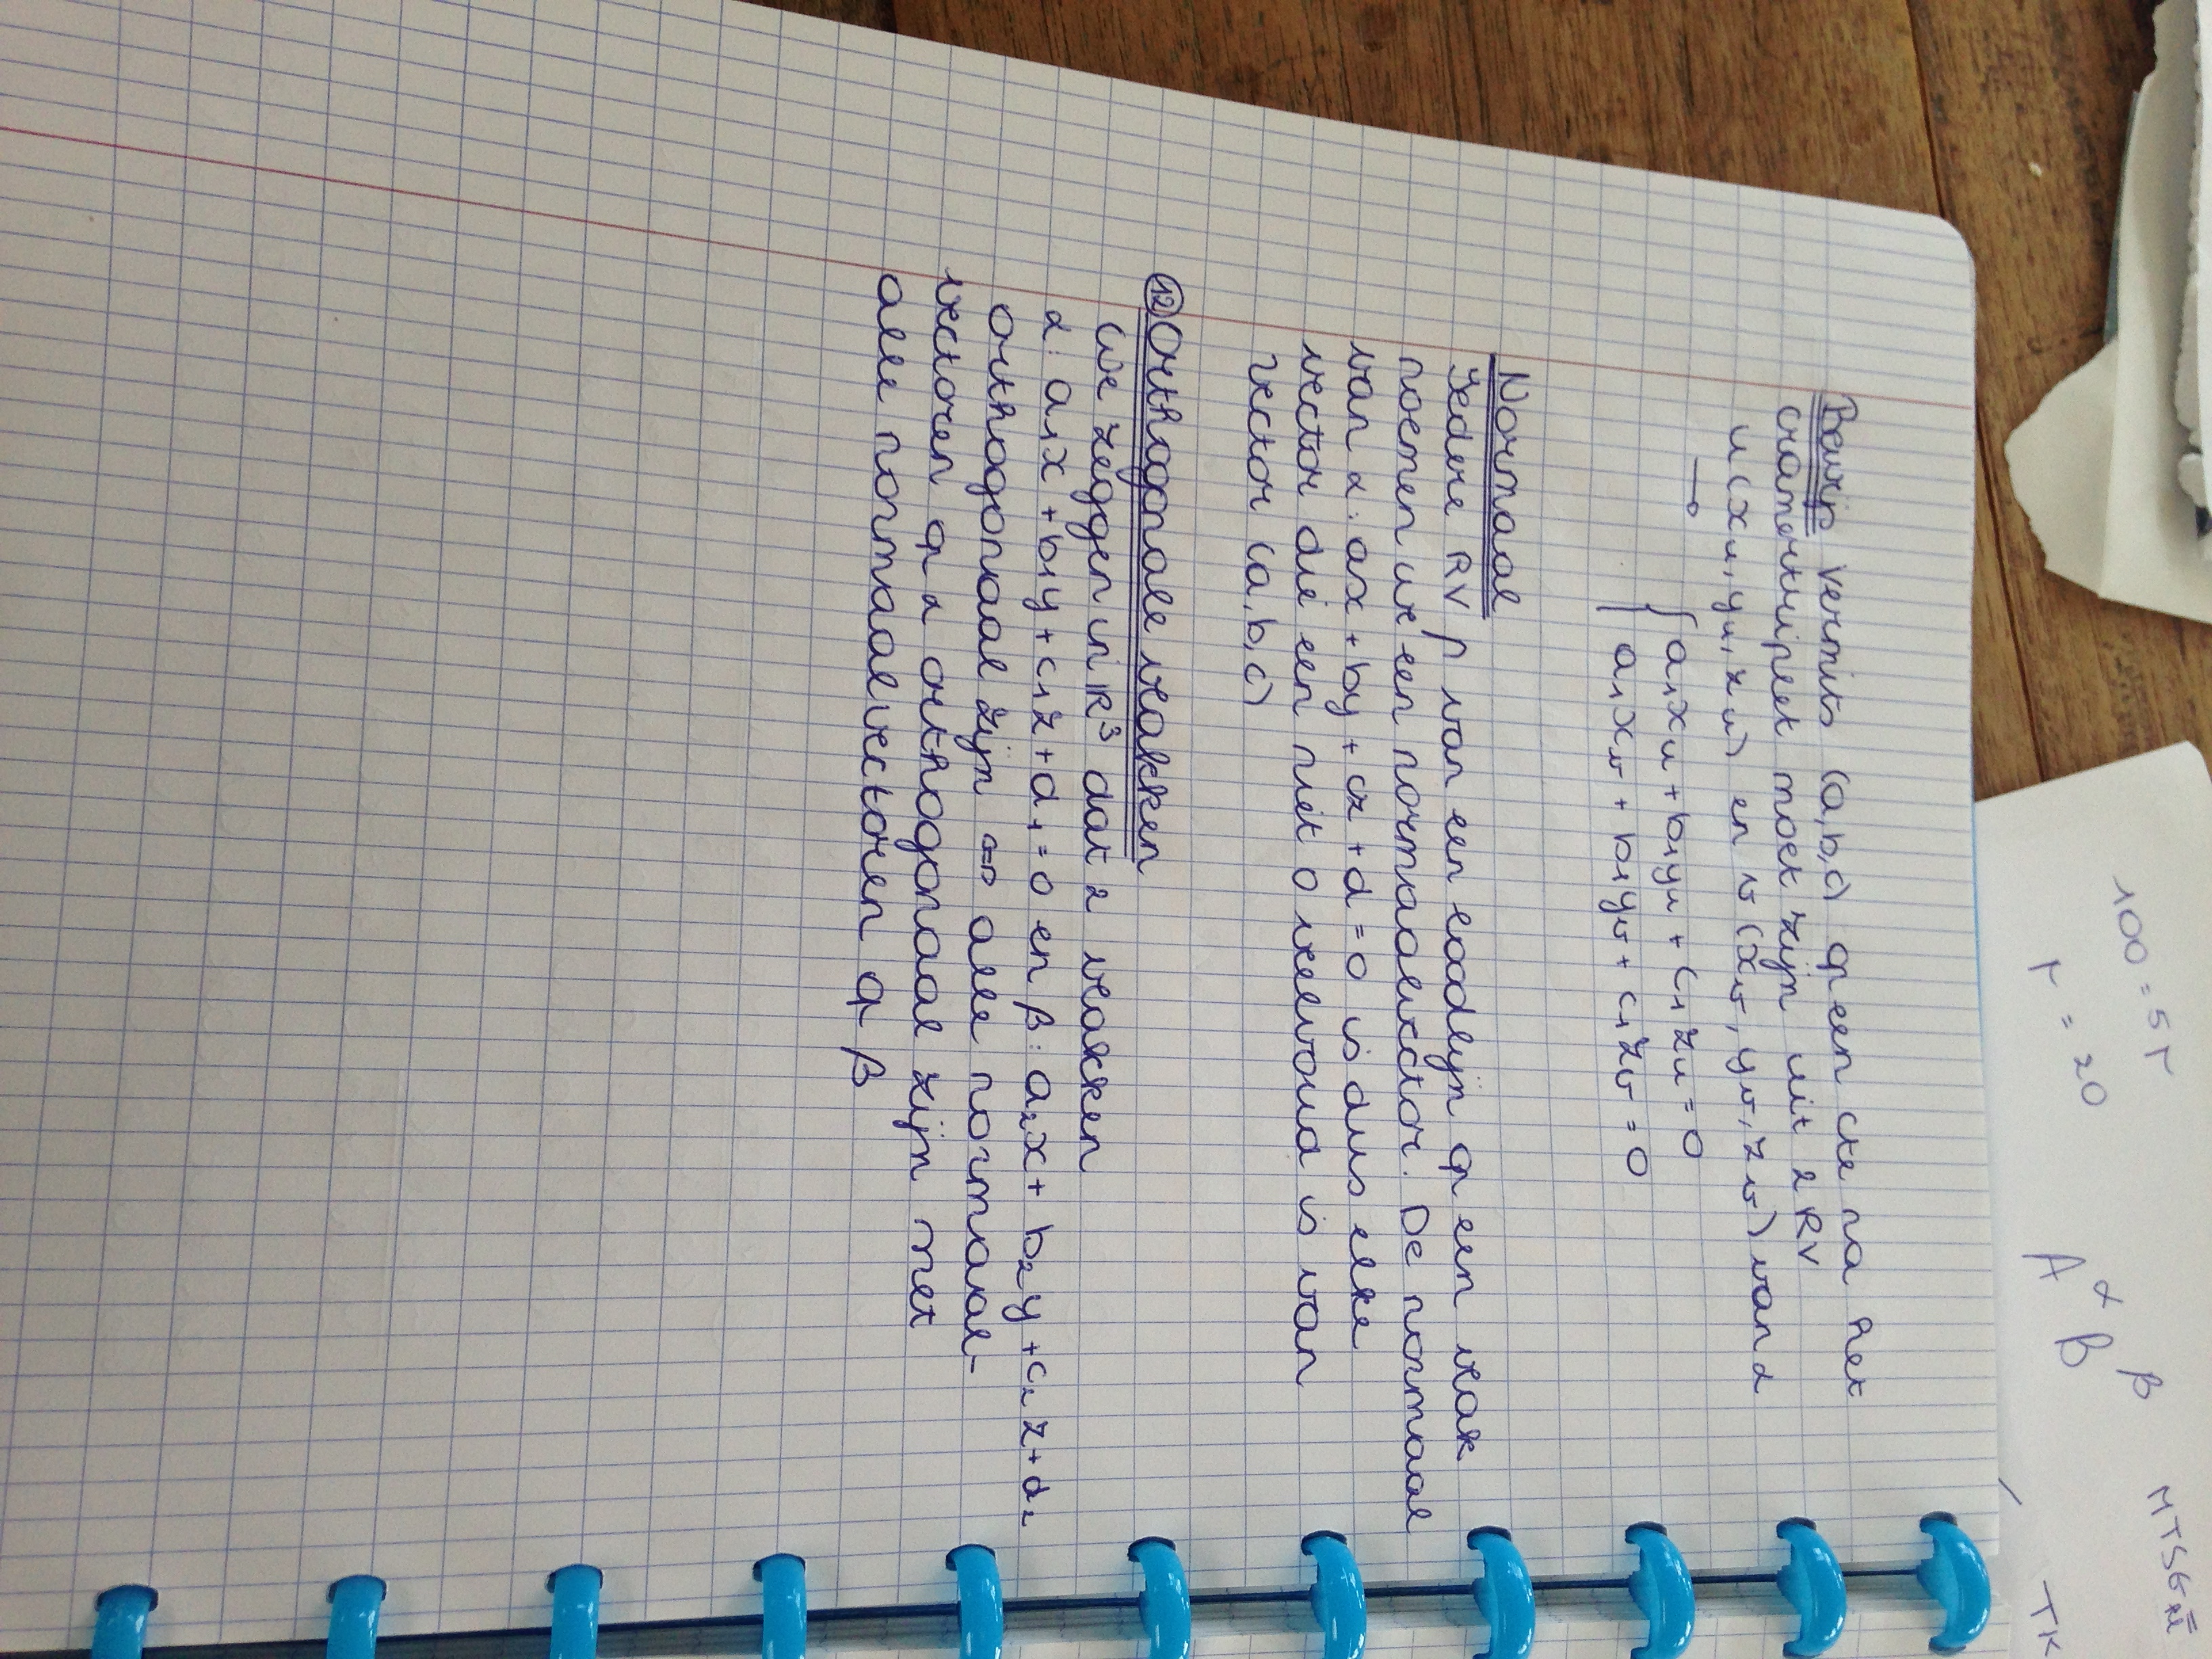 Bewijs vermits (a,b,c) op een cte na het
cramertripel moet zijn uit 2 RV
u(xu, yu, zu) en v(xv, yv, zv) van α
→ { a₁xu + b₁yu + c₁zu = 0
a₁xv + b₁yv + c₁zv = 0
Normaal
Iedere RV p van een loodlijn op een vlak
noemen we een normaalvector. De normaal
van α: ax + by + cz + d = 0 is dus elke
vector die een niet 0 veelvoud is van
vector (a,b,c)
⑫ Orthogonale vlakken
We zeggen in ℝ³ dat 2 vlakken
α: a₁x + b₁y + c₁z + d₁ = 0 en β: a₂x + b₂y + c₂z + d₂
orthogonaal zijn ⇔ alle normaal-
vectoren op α orthogonaal zijn met
alle normaalvectoren op β
100 = 5r
r = 20
α β
A B
TK